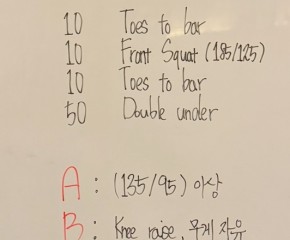 10 Toes to bar
10 Front Squat (185/125)
10 Toes to bar
50 Double under
A : (135/95) 이상
B : Knee raise, 무게 자유